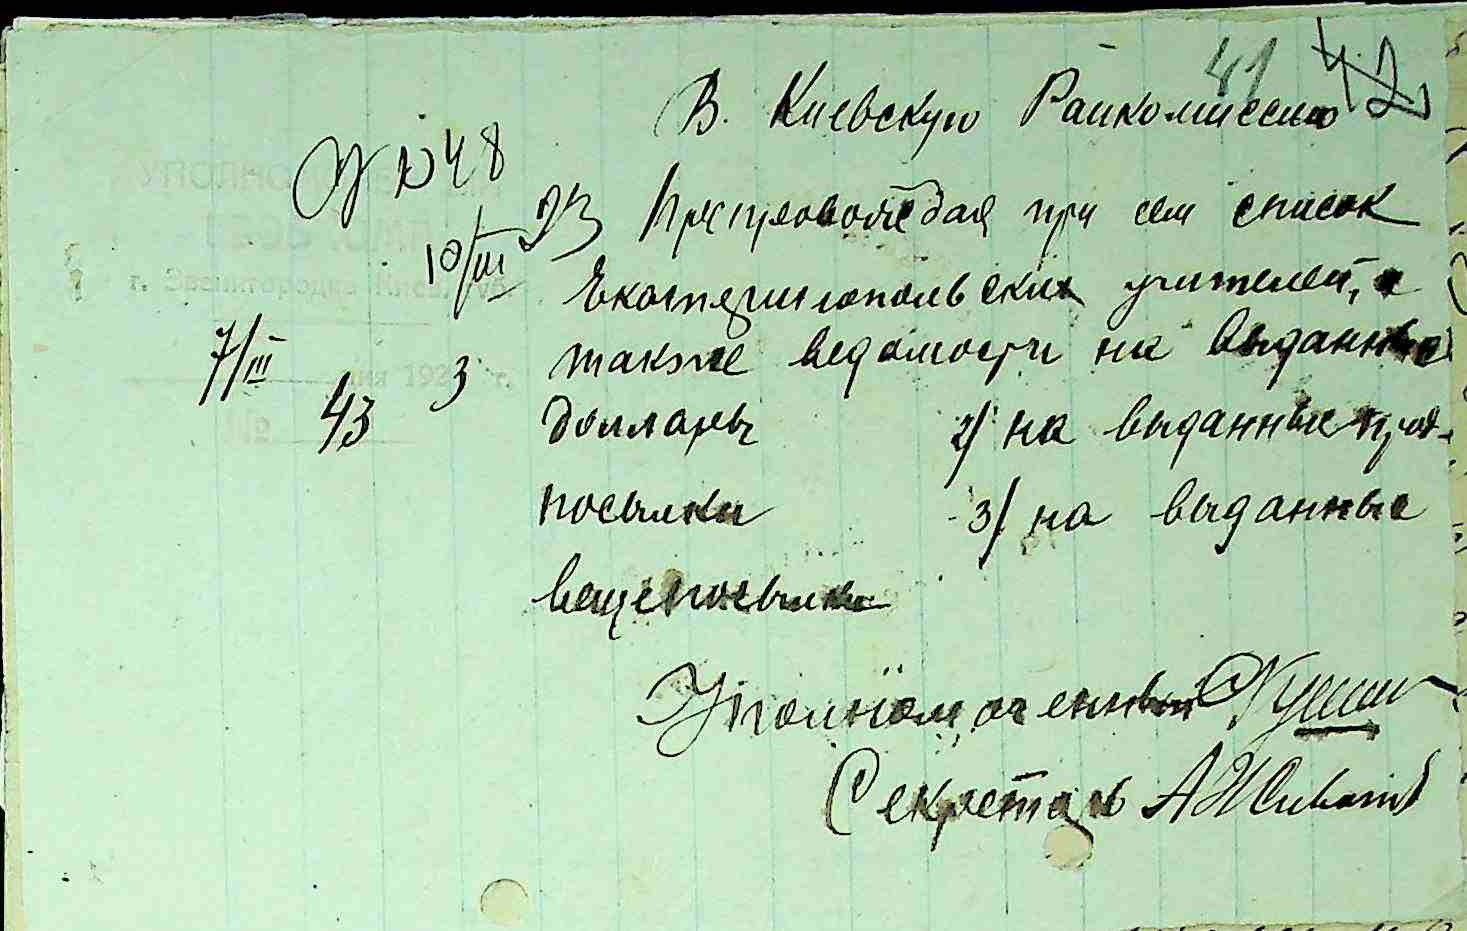 41 42
В. Киевскую Райкомиссию
№ 48
10/III 23 Препровождая при сем список
Екатеринопольских учителей, а
7/III 3 также ведомости на выданные
43 доллары 2/ на выданные прод-
посылки 3/ на выданные
вещепосылки
Уполномоченный
Секретарь
УПОЛНО
г. Звенигородка Киев. губ.
дня 192 г.
№